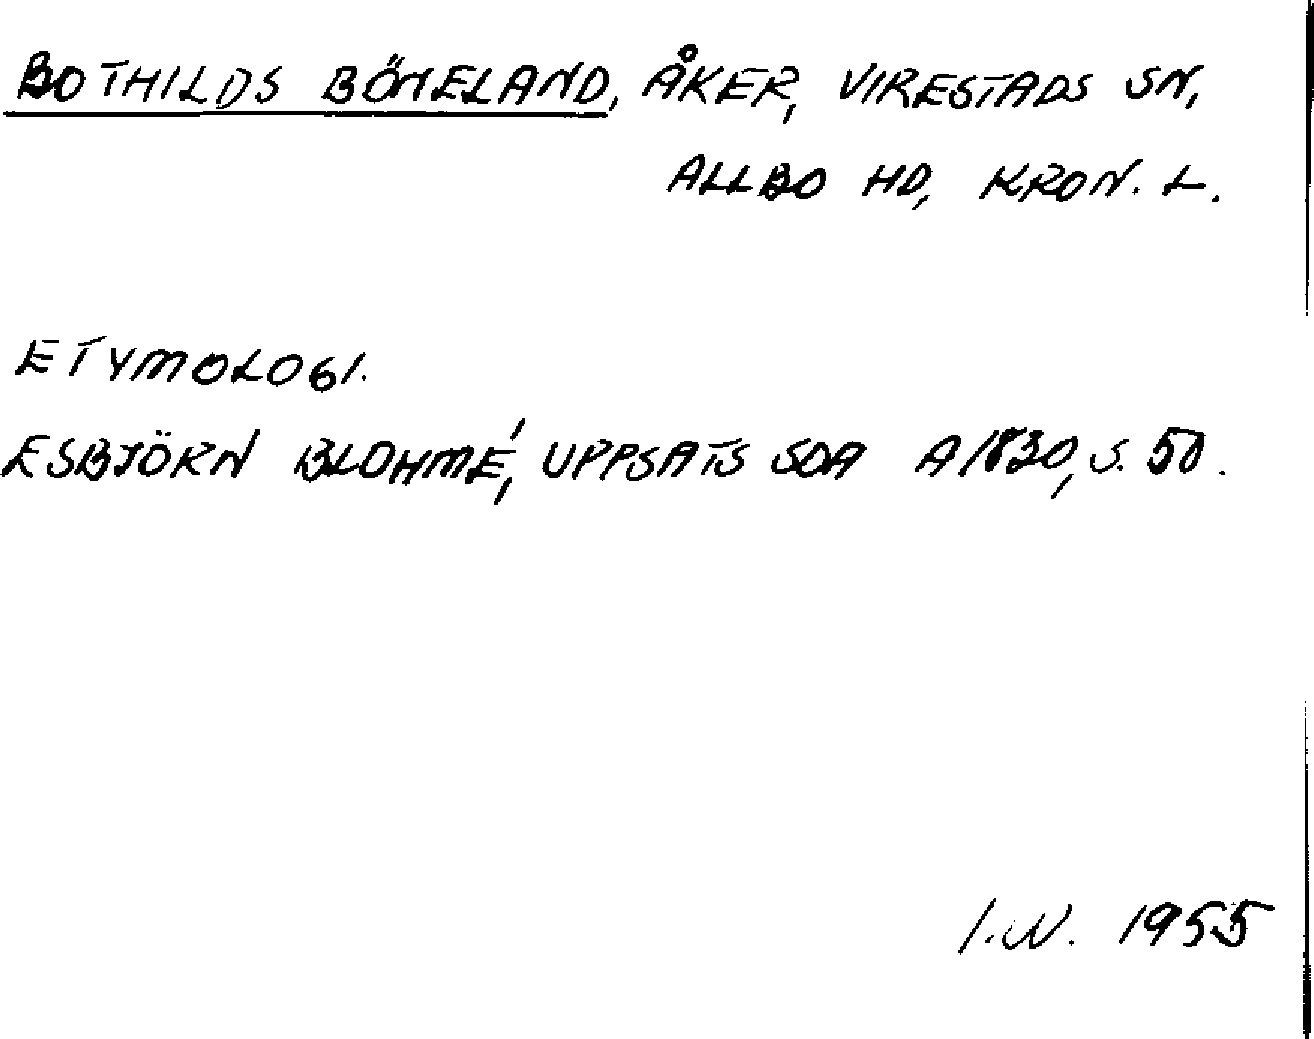 BOTHILDS BÖNELAND, ÅKER, VIRESTADS SN,
ALLBO HD, KRON. L.
ETYMOLOGI.
ESBJÖRN BLOHMÉ, UPPSATS SOA A1830, S. 50.
I.W. 1955